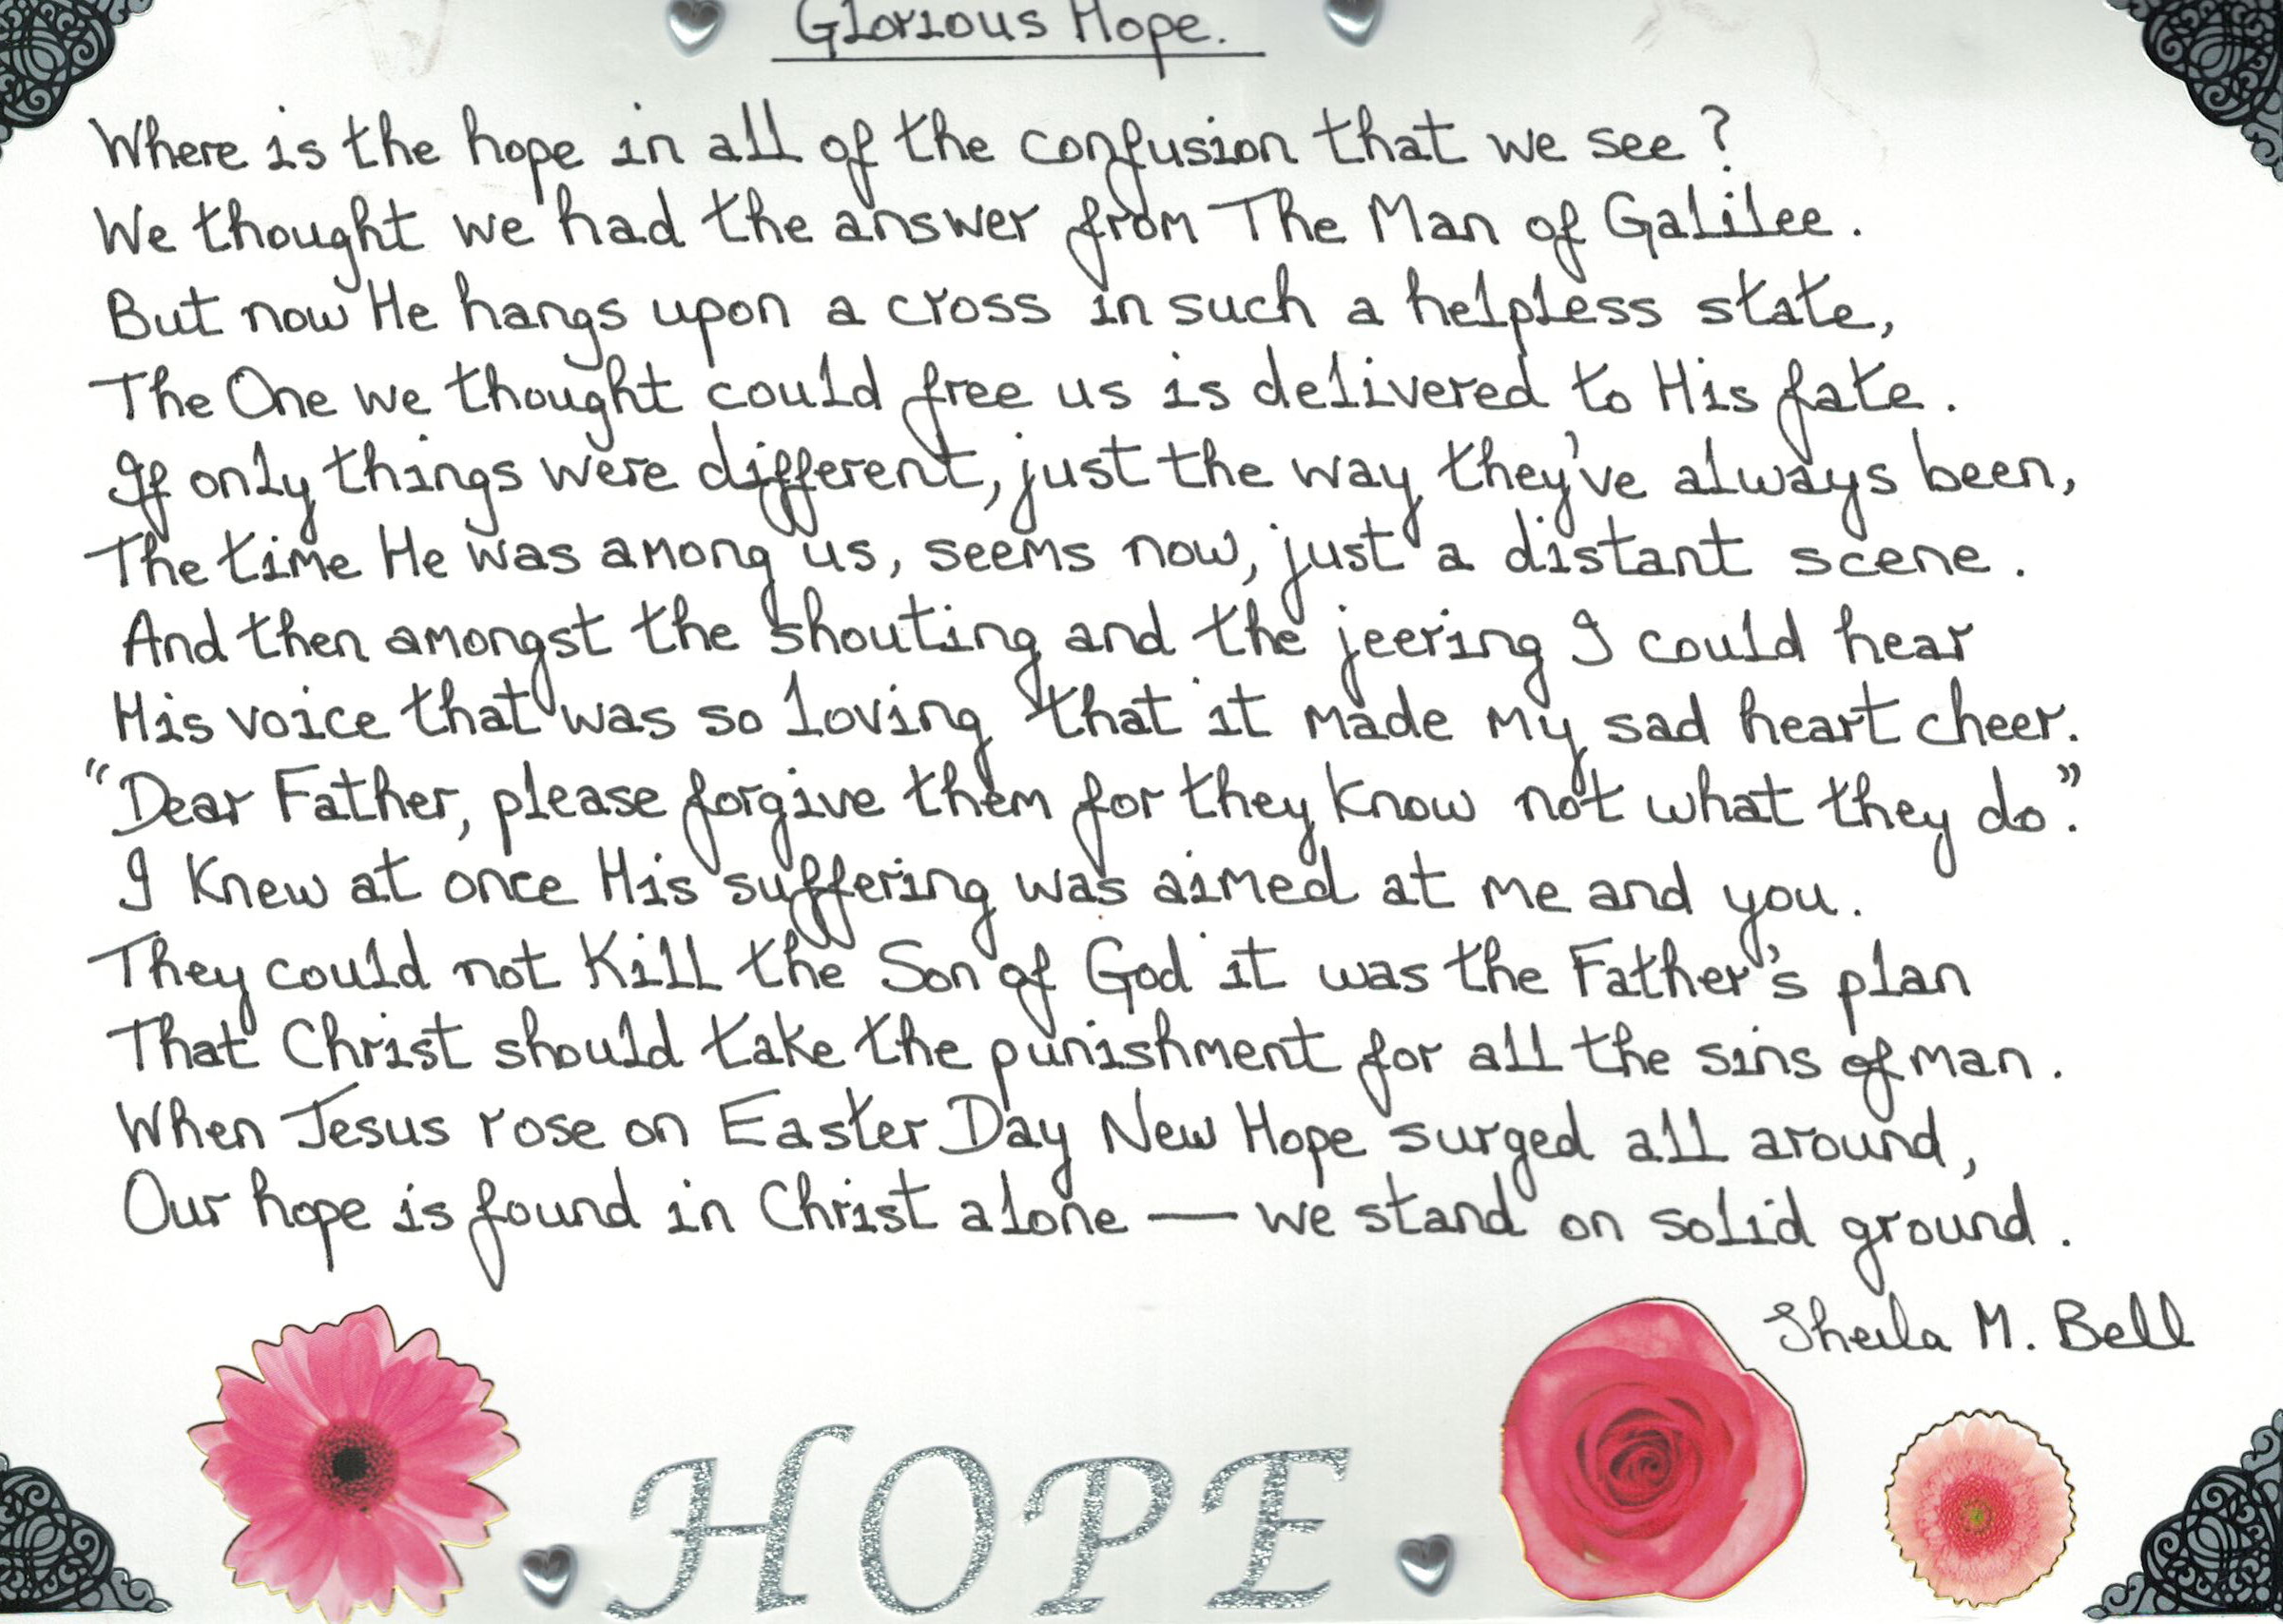 Glorious Hope.
Where is the hope in all of the confusion that we see?
We thought we had the answer from The Man of Galilee.
But now He hangs upon a cross in such a helpless state,
The One we thought could free us is delivered to His fate.
If only things were different, just the way they've always been,
The time He was among us, seems now, just a distant scene.
And then amongst the shouting and the jeering I could hear
His voice that was so loving that it made my sad heart cheer.
"Dear Father, please forgive them for they know not what they do".
I knew at once His suffering was aimed at me and you.
They could not kill the Son of God it was the Father's plan
That Christ should take the punishment for all the sins of man.
When Jesus rose on Easter Day New Hope surged all around,
Our hope is found in Christ alone — we stand on solid ground.
Sheila M. Bell
HOPE